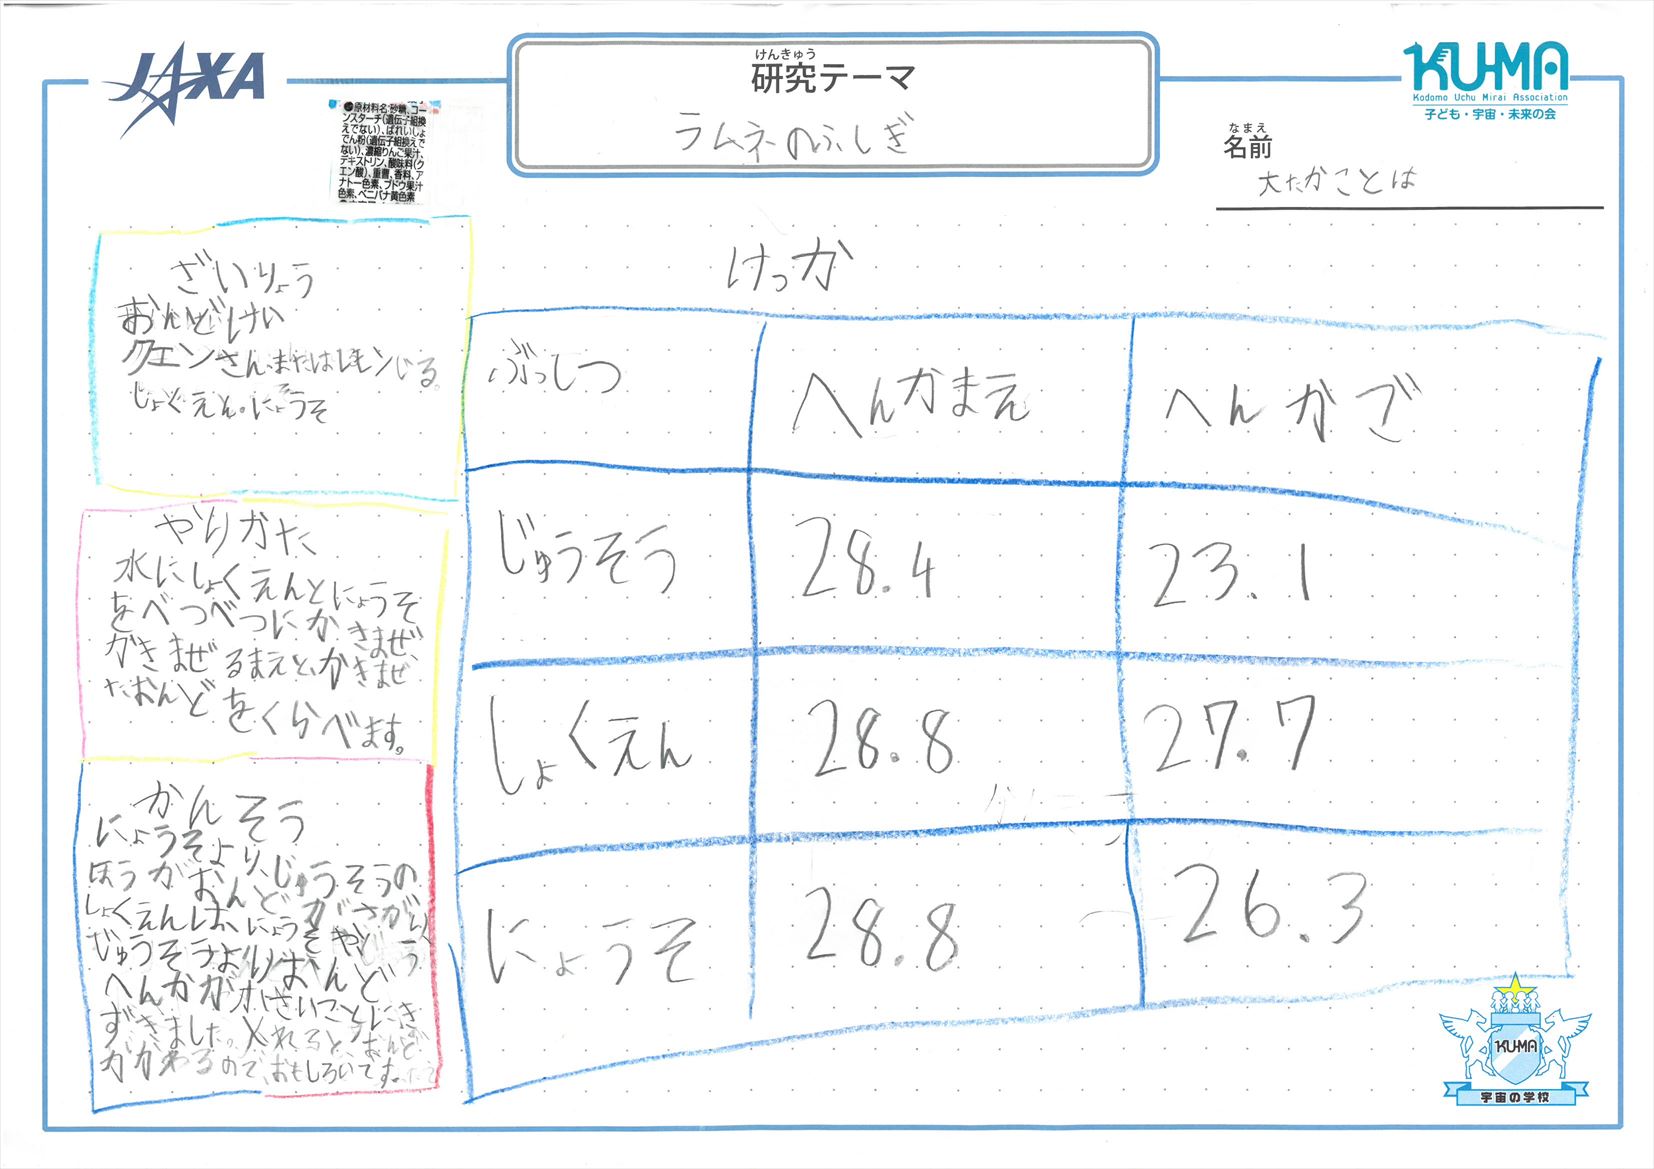 JAXA
けんきゅう
研究テーマ
ラムネのふしぎ
KU-MA
Kodomo Uchu Mirai Association
子ども・宇宙・未来の会
なまえ
名前
大たかことは
原材料名:砂糖、コー
ンスターチ(遺伝子組換
えでない)、ばれいしょ
でん粉(遺伝子組換えで
ない)、濃縮りんご果汁、
デキストリン、酸味料(ク
エン酸)、重曹、香料、ア
ナトー色素、ブドウ果汁
色素、ベニバナ黄色素
ざいりょう
おんどけい
クエンさん、またはレモンじる。
しょくえん・にょうそ
やりかた
水にしょくえんとにょうそ
をべつべつにかきまぜ、
かきまぜるまえと、かきまぜ
たおんどをくらべます。
かんそう
にょうそより、じゅうそうの
ほうがおんどがさがり、
しょくえんは、にょうそや
じゅうそうよりおんど
へんかが小さいことにき
ずきました。入れると、おんど
がかわるので、おもしろいです。
けっか
ぶっしつ
へんかまえ
へんかご
じゅうそう
28.4
23.1
しょくえん
28.8
27.7
にょうそ
28.8
26.3
KU-MA
宇宙の学校